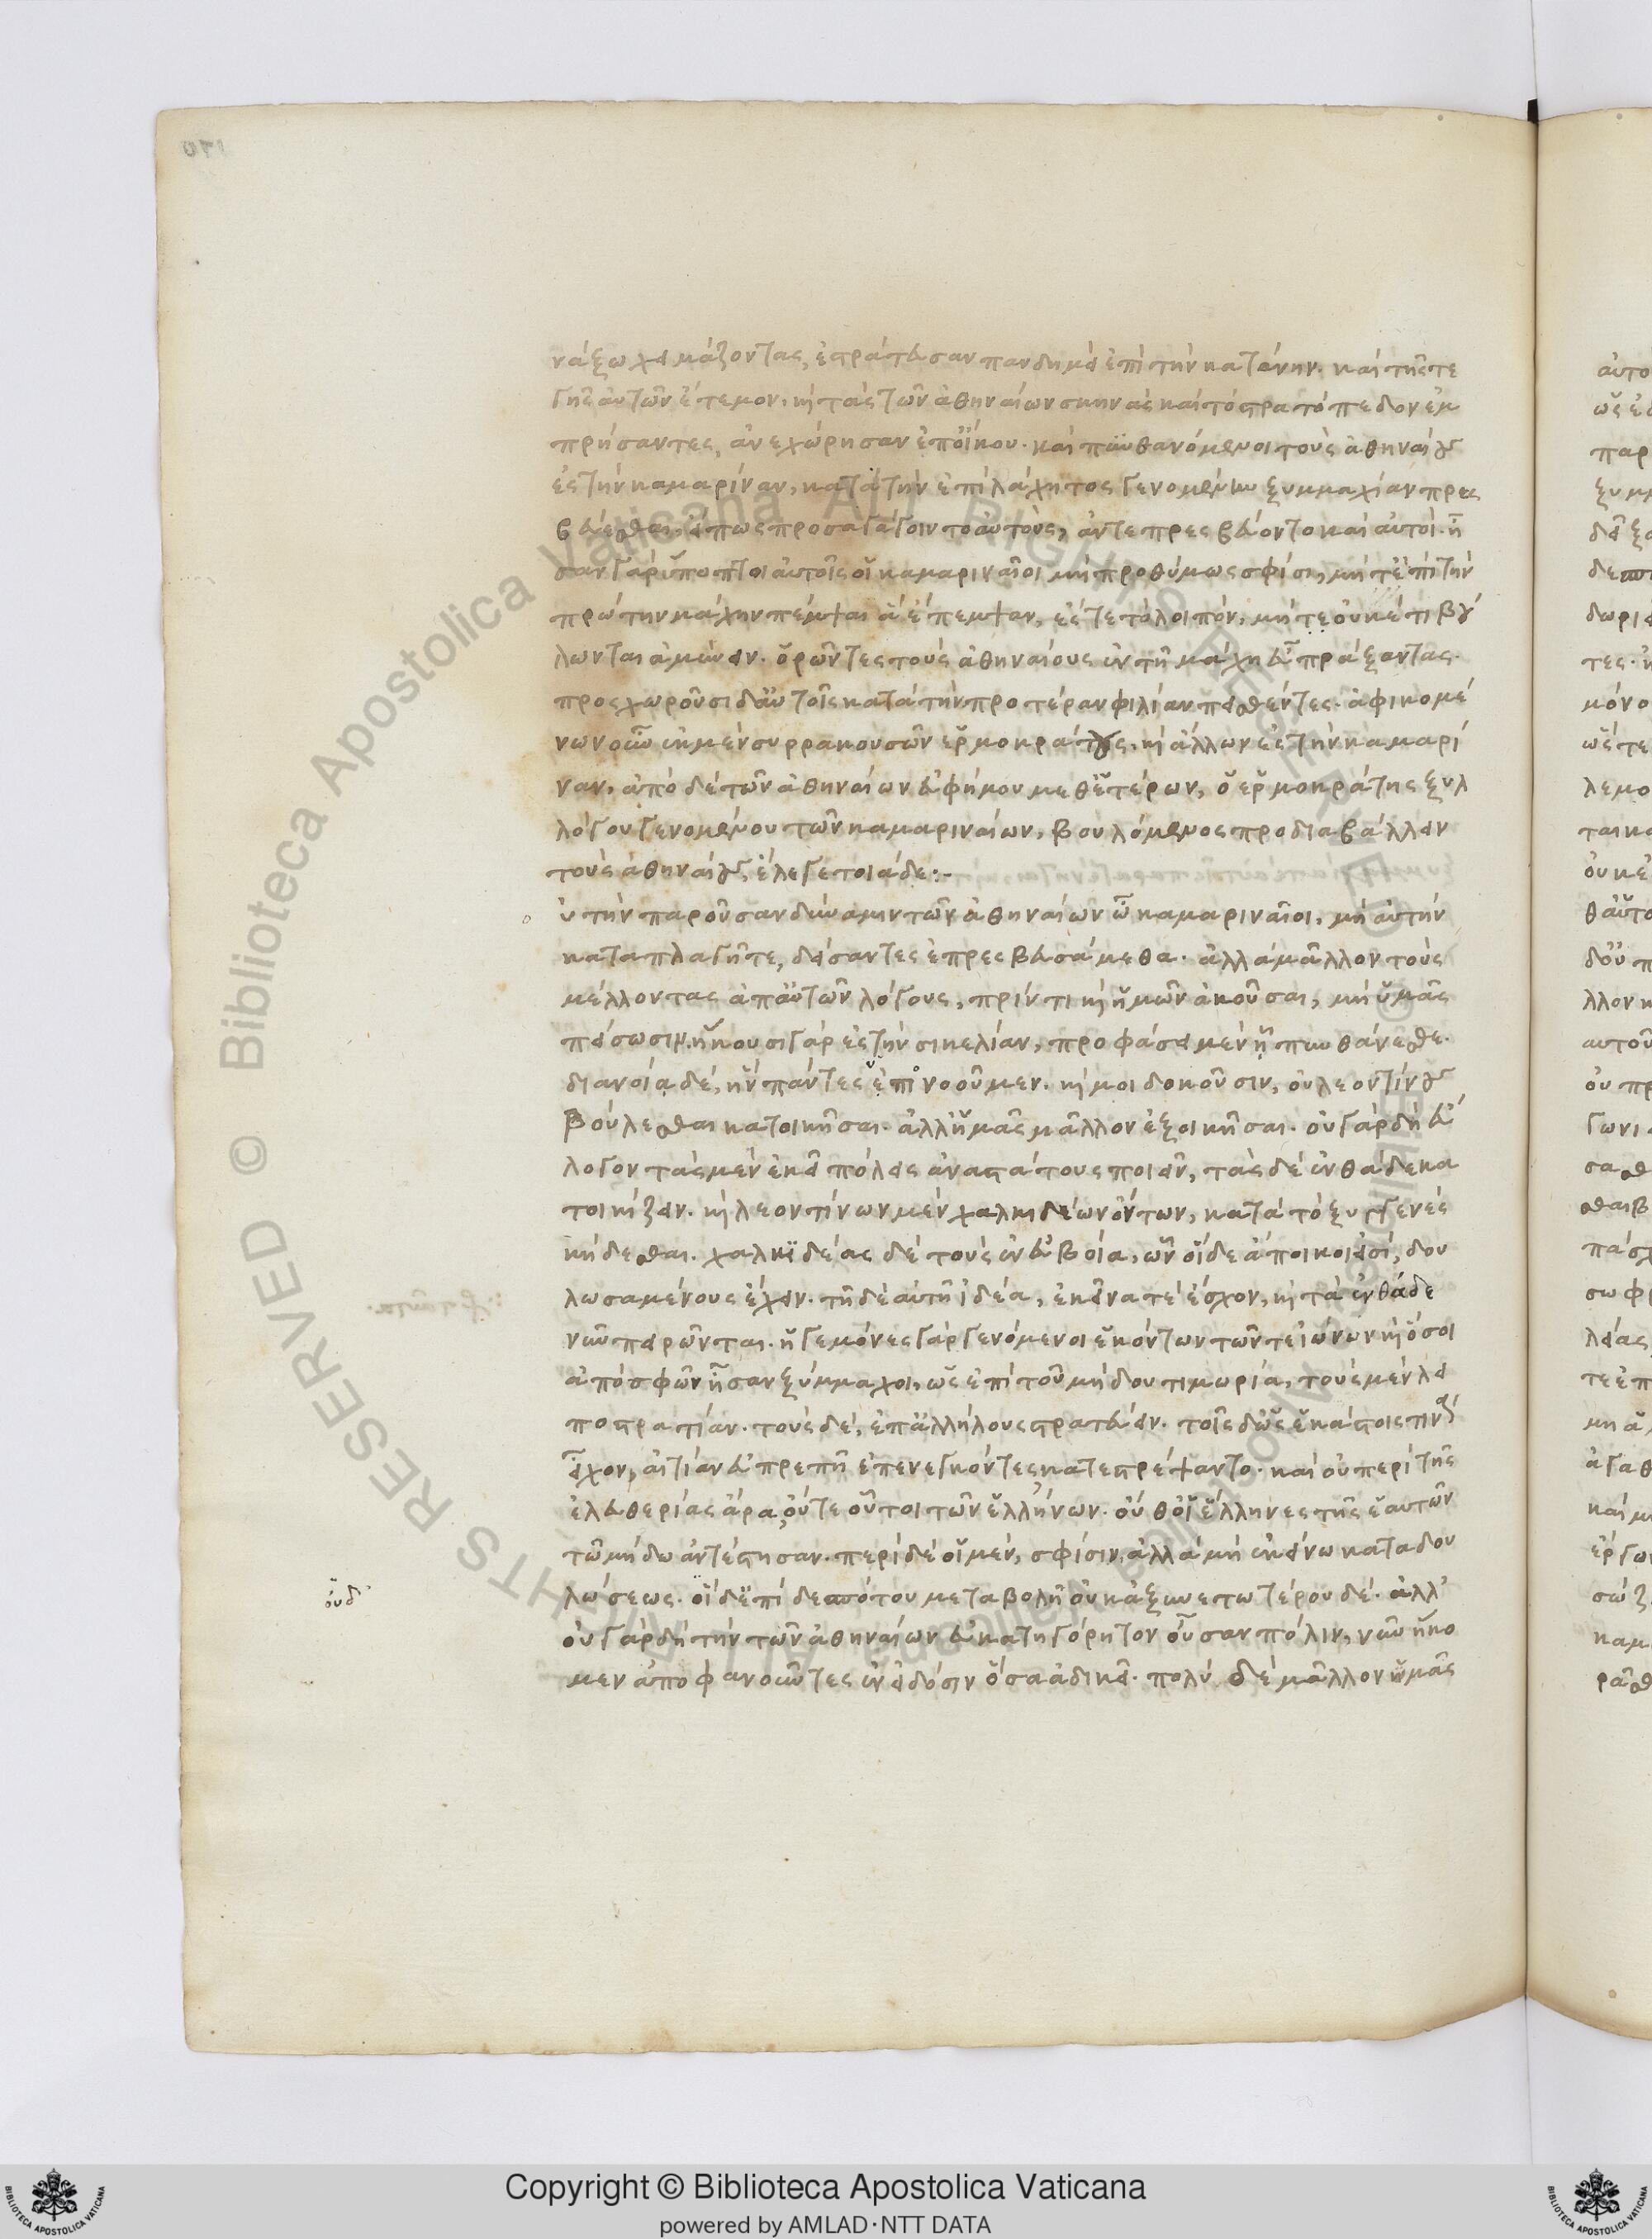 νάξω χειμάζοντας, ἐστράτευσαν πανδημεὶ ἐπὶ τὴν κατάνην. καὶ τῆς τε
γῆς αὐτῶν ἔτεμον. καὶ τὰς τῶν ἀθηναίων σκηνὰς καὶ τὸ στρατόπεδον ἐμ
πρήσαντες, ἀνεχώρησαν ἐπ' οἴκου. καὶ πυνθανόμενοι τοὺς ἀθηναίους
ἐς τὴν καμαρίναν, κατὰ τὴν ἐπὶ λάχητος γενομένην ξυμμαχίαν πρεσ
βεύεσθαι, εἴπως προσαγάγοιντο αὐτούς, ἀντεπρεσβεύοντο καὶ αὐτοί. ἦ
σαν γὰρ ὕποπτοι αὐτοῖς οἱ καμαριναῖοι μὴ προθύμως σφίσι, μήτ' ἐπὶ τὴν
πρώτην μάχην πέμψαι ἃ ἔπεμψαν, ἔς τε τὸ λοιπόν, μή τε οὐκέτι βού
λωνται ἀμύνειν. ὁρῶντες τοὺς ἀθηναίους ἐν τῇ μάχῃ εὖ πράξαντας.
προσχωρῶσι δ' αὐτοῖς κατὰ τὴν προτέραν φιλίαν πεισθέντες. ἀφικομέ
νων οὖν ἐκ μὲν συρρακουσῶν ἑρμοκράτους, καὶ ἄλλων ἐς τὴν καμαρί
ναν, ἀπὸ δὲ τῶν ἀθηναίων εὐφήμου μεθ' ἑτέρων, ὁ ἑρμοκράτης ξυλ
λόγου γενομένου τῶν καμαριναίων, βουλόμενος προδιαβάλλειν
τοὺς ἀθηναίους, ἔλεγε τοιάδε:-
ὐ τὴν παροῦσαν δύναμιν τῶν ἀθηναίων ὦ καμαριναῖοι, μὴ αὐτὴν
καταπλαγῆτε, δείσαντες ἐπρεσβευσάμεθα. ἀλλὰ μᾶλλον τοὺς
μέλλοντας ἀπ' αὐτῶν λόγους, πρίν τι καὶ ἡμῶν ἀκοῦσαι, μὴ ὑμᾶς
πείσωσιν. ἥκουσι γὰρ ἐς τὴν σικελίαν, προφάσει μὲν ᾗ πυνθάνεσθε.
διανοίᾳ δέ, ἣν πάντες ὑπονοοῦμεν. καί μοι δοκοῦσιν, οὐ λεοντίνους
βούλεσθαι κατοικῆσαι. ἀλλ' ἡμᾶς μᾶλλον ἐξοικῆσαι. οὐ γὰρ δὴ εὔ
λογον τὰς μὲν ἐκεῖ πόλεις ἀναστάτους ποιεῖν, τὰς δὲ ἐνθάδε κα
τοικίζειν. καὶ λεοντίνων μὲν χαλκιδέων ὄντων, κατὰ τὸ ξυγγενὲς
κήδεσθαι. χαλκιδέας δὲ τοὺς ἐν εὐβοίᾳ, ὧν οἵδε ἄποικοί εἰσι, δου
λωσαμένους ἔχειν. τῇ δὲ αὐτῇ ἰδέᾳ, ἐκεῖνά τε ἔσχον, καὶ τὰ ἐνθάδε
νῦν πειρῶνται. ἡγεμόνες γὰρ γενόμενοι ἑκόντων τῶν τε ἰώνων καὶ ὅσοι
ἀπὸ σφῶν ἦσαν ξύμμαχοι, ὡς ἐπὶ τοῦ μήδου τιμωρίᾳ, τοὺς μὲν λει
ποστρατίαν. τοὺς δέ, ἐπ' ἀλλήλους στρατεύειν. τοῖς δ' ὡς ἑκάστοις τινὰ
εἶχον, αἰτίαν εὐπρεπῆ ἐπενεγκόντες κατεστρέψαντο. καὶ οὐ περὶ τῆς
ἐλευθερίας ἄρα, οὔτε οὗτοι τῶν ἑλλήνων. οὔθ' οἱ ἕλληνες τῆς ἑαυτῶν
τῷ μήδῳ ἀντέστησαν. περὶ δὲ οἱ μέν, σφίσιν, ἀλλὰ μὴ ἐκείνῳ καταδου
λώσεως. οἱ δ' ἐπὶ δεσπότου μεταβολῇ οὐκ ἀξυνετωτέρου δέ. ἀλλ'
οὐ γὰρ δὴ τὴν τῶν ἀθηναίων εὐκατηγόρητον οὖσαν πόλιν, νῦν ἥκο
μεν ἀποφανοῦντες ἐν εἰδόσιν ὅσα ἀδικεῖ. πολὺ δὲ μᾶλλον ἡμᾶς
οὐδ'
Copyright © Biblioteca Apostolica Vaticana
powered by AMLAD·NTT DATA